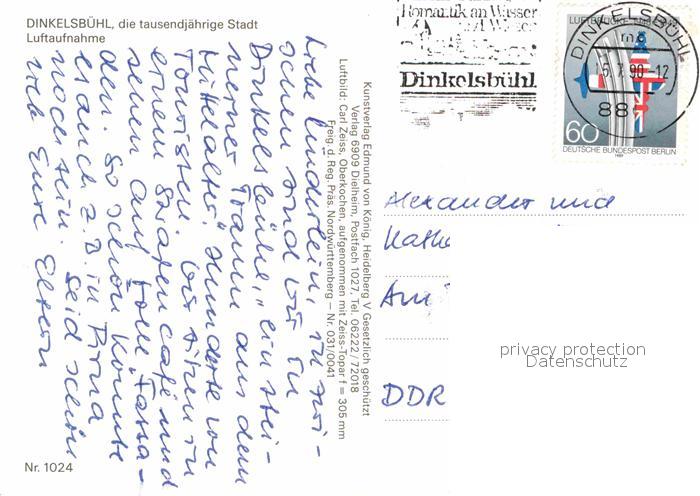 DINKELSBÜHL, die tausendjährige Stadt
Luftaufnahme
Liebe Kinderlein, in zwi-
schen sind wir in
Dinkelsbühl, "ein stei-
nerner Traum aus dem
Mittelalter". Hunderte von
Touristen. Wir sitzen in
einem Straßencafé und
sehen auf tolle Fassa-
den. So schön könnte
es auch z B in Pirna
noch sein. Seid schön
Eure Eltern
Kunstverlag Edmund von König, Heidelberg V Gesetzlich geschützt
Verlag 6909 Dielheim, Postfach 1027, Tel. 06222/72018
Luftbild: Carl Zeiss, Oberkochen, aufgenommen mit Zeiss-Topar f = 305 mm
Freig. d. Reg. Präs. Nordwürttemberg – Nr. 031/0041
Nr. 1024
Romantik an Wasser
Dinkelsbühl
DINKELSBÜHL
mc
7.90-12
8811
LUFTBRÜCKE
60
DEUTSCHE BUNDESPOST BERLIN
1989
Alexander und
Kath
Am
DDR
privacy protection
Datenschutz